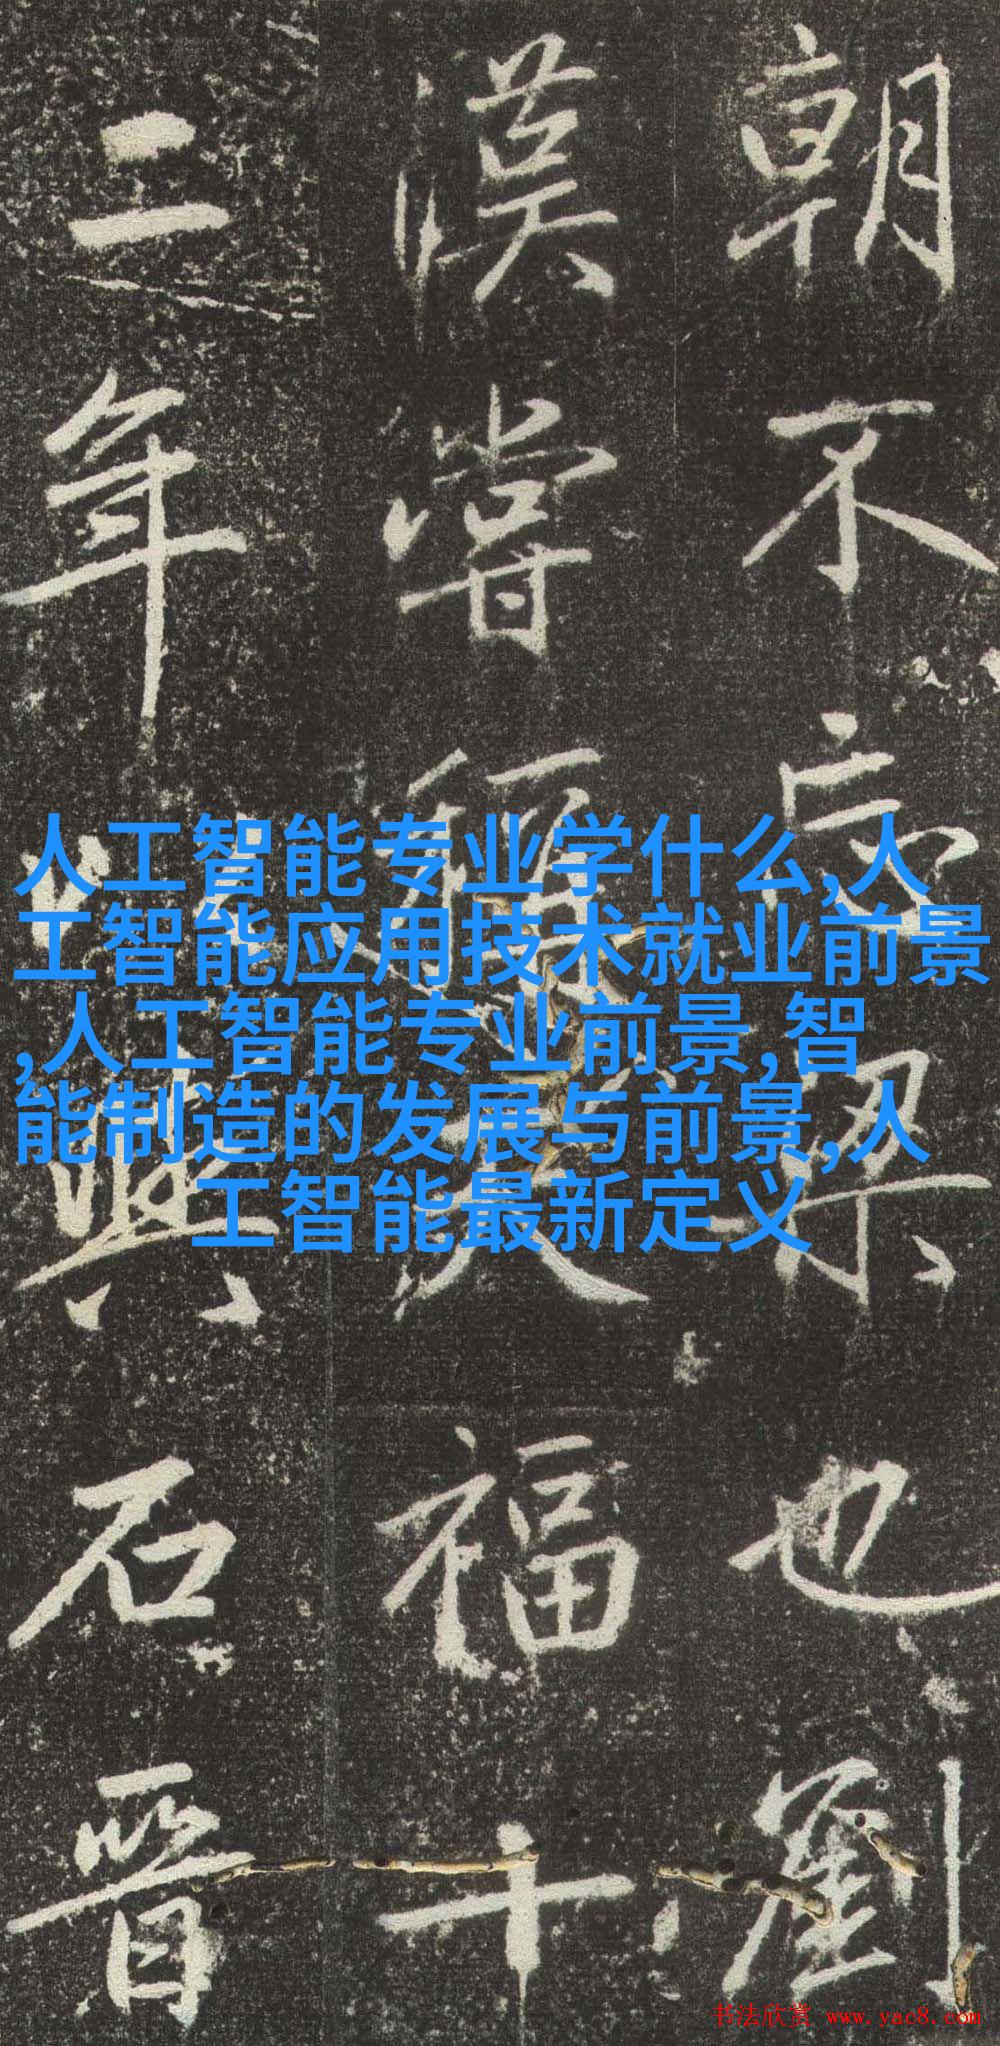 朝不忘梁也劉
漢嘗稱天福十
二年以石晉
人工智能专业学什么,人
工智能应用技术就业前景
,人工智能专业前景,智
能制造的发展与前景,人
工智能最新定义
书法欣赏 www.yac8.com